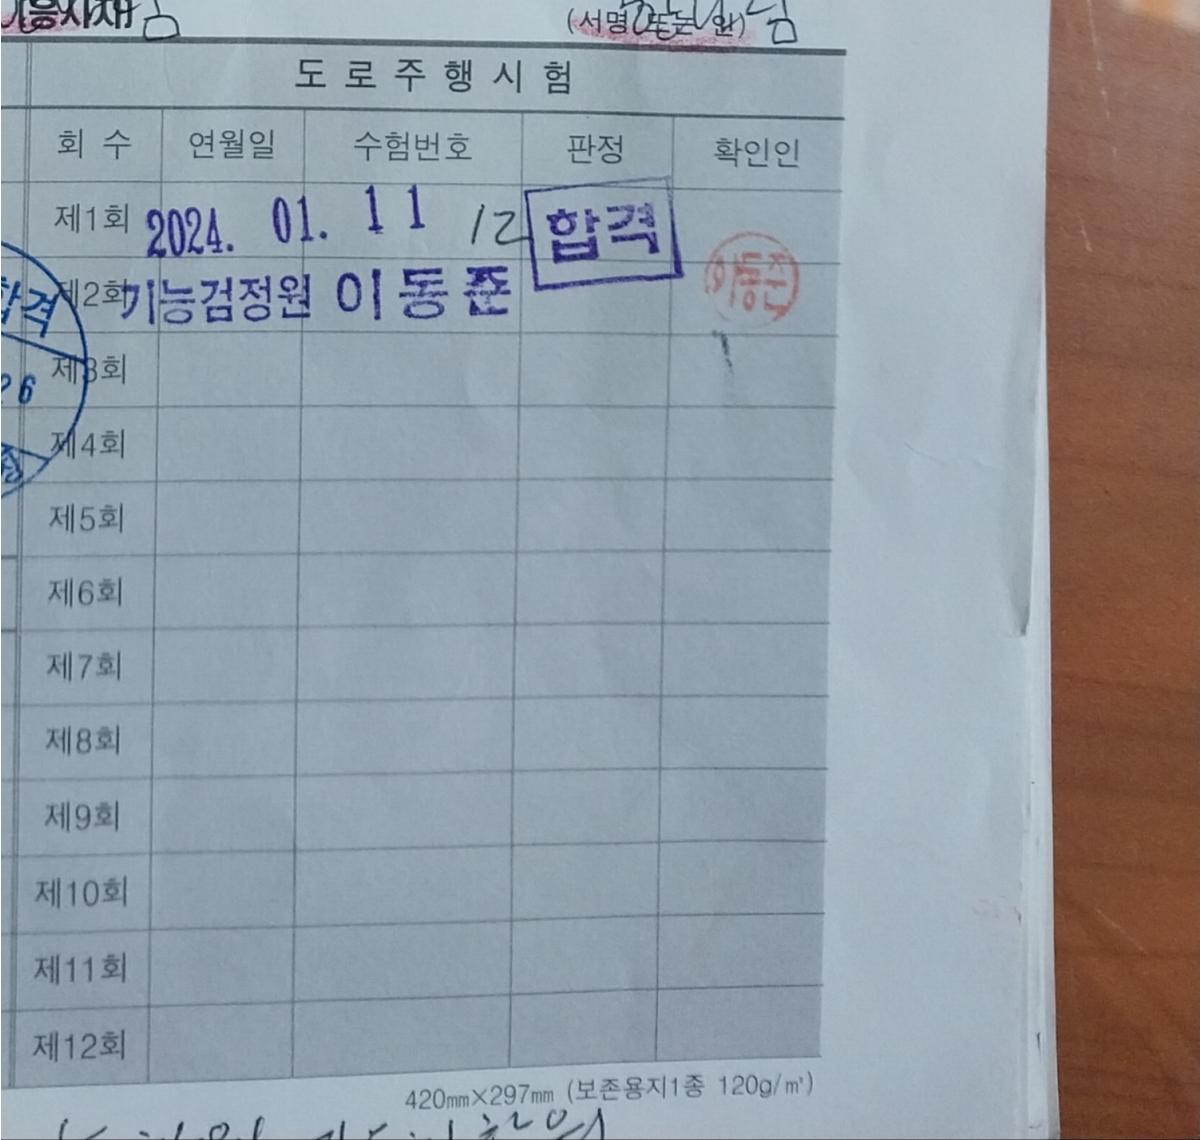 (서명 또는 인)
도로주행시험
회수 연월일 수험번호 판정 확인인
제1회 2024. 01. 11 12 합격
제2회 기능검정원 이동준 이동준
합격
제3회
26
제4회
제5회
제6회
제7회
제8회
제9회
제10회
제11회
제12회
420㎜×297㎜ (보존용지1종 120g/㎡)